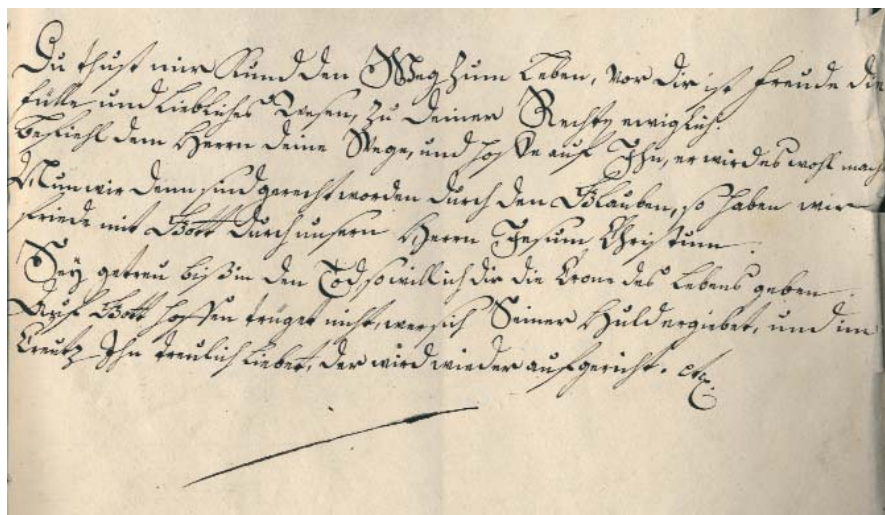 Du thust mir Kund den Weg zum Leben, vor dir ist Freude die
fülle und liebliches Wesen, zu deiner Rechten ewiglich.
Befiehl dem Herrn deine Wege, und hoffe auf Ihn, er wird es wohl mach
Nun wir denn sind gerecht worden durch den Glauben, so haben wir
friede mit Gott durch unsern Herrn Jesum Christum.
Sey getreu biß in den Tod, so will ich dir die Crone des Lebens geben.
Auf Gott hoffen trüget nicht, wer sich Seiner Huld ergiebet, und im
Creutz Ihn treulich liebet, der wird wieder aufgericht. etc.